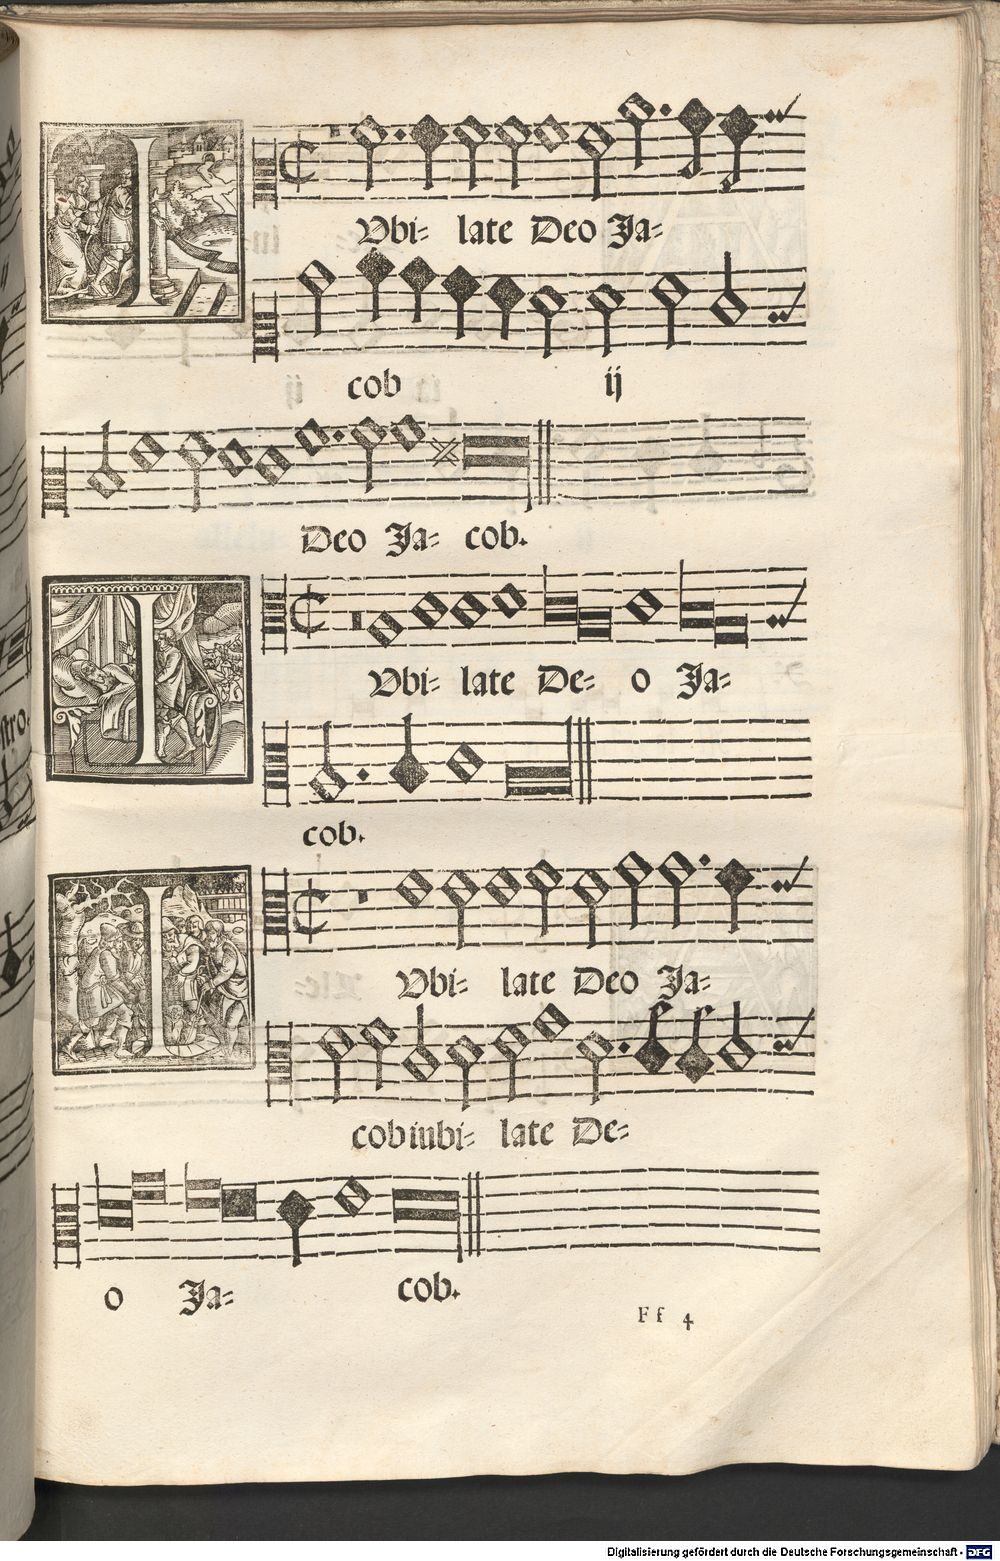 IVbi= late Deo Ja=
ij cob ij
Deo Ja= cob.
IVbi= late De= o Ja=
cob.
IVbi= late Deo Ja=
cob iubi= late De=
o Ja= cob.
Ff 4
stro.
Digitalisierung gefördert durch die Deutsche Forschungsgemeinschaft - DFG